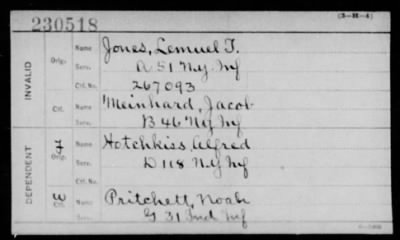 230518 (3-H-4)
INVALID
Orig.
Name Jones, Lemuel T.
Serv. A 51 N.Y. Inf
Ctf. No. 267093
Ctf.
Name Meinhard, Jacob
Serv. B 46 NY Inf
DEPENDENT
Orig.
Name Hotchkiss, Alfred
Serv. D 118 N.Y. Inf
Ctf. No.
W
Ctf.
Name Pritchett, Noah
Serv. G 31 Ind Inf